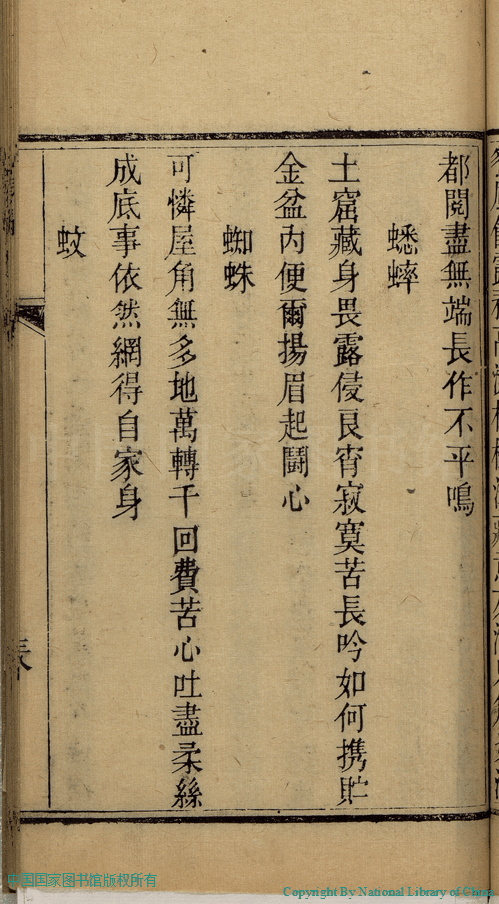 都閱盡無端長作不平鳴
蟋蟀
土窟藏身畏露侵艮宵寂寞苦長吟如何携貯
金盆內便爾揚眉起鬪心
蜘蛛
可憐屋角無多地萬轉千回費苦心吐盡柔絲
成底事依然網得自家身
蚊
中国国家图书馆版权所有
Copyright By National Library of China